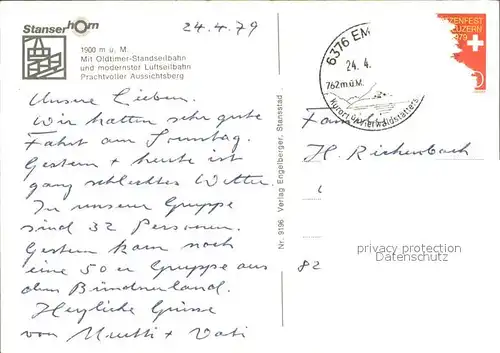 Stanserhorn
24.4.79
1900 m ü. M.
Mit Oldtimer-Standseilbahn
und modernster Luftseilbahn
Prachtvoller Aussichtsberg
Unsere Lieben.
Wir hatten sehr gute
Fahrt am Sonntag.
Gestern + heute ist
ganz schlechtes Wetter.
In unserer Gruppe
sind 32 Personen.
Gestern kam noch
eine 50er Gruppe aus
dem Bündnerland.
Herzliche Grüsse
von Mutti + Vati
Nr. 9196 Verlag Engelberger, Stansstad
6376 EM
24. 4.
762 m ü. M.
Kurort
TZENFEST
LUZERN
1979
H. Rickenbach
82
privacy protection
Datenschutz